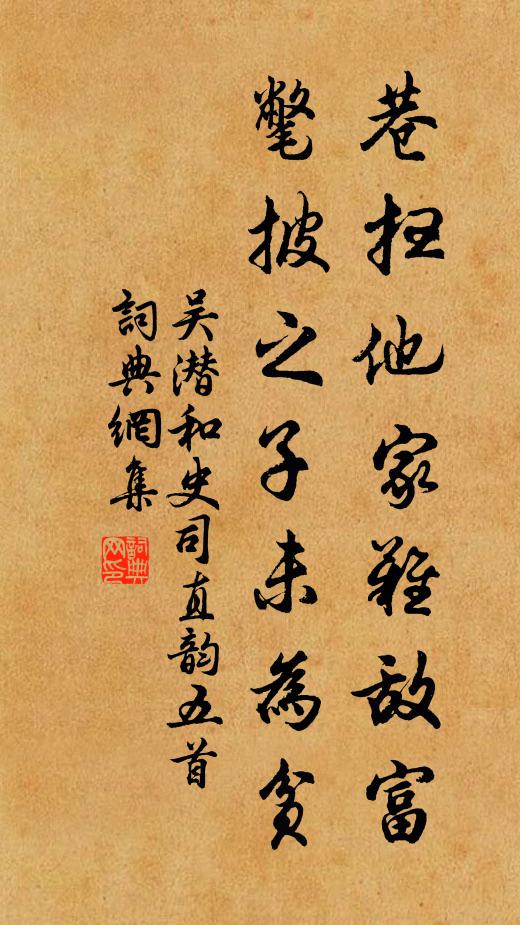 巷扫他家難敌富
氅披之子未為貧
吴潜和史司直韵五首
詞典網集
詞典网印